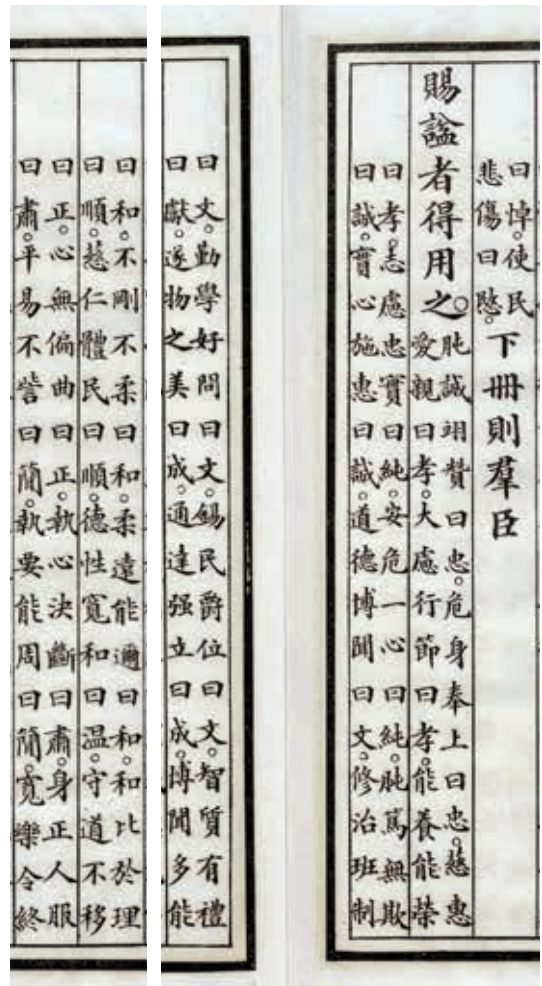 曰悼。使民
悲傷曰愍。
下冊則羣臣
賜諡者得用之。
肫誠翊贊曰忠。危身奉上曰忠。慈惠
愛親曰孝。大慮行節曰孝。能養能榮
曰孝。志慮忠實曰純。安危一心曰純。肫篤無欺
曰誠。實心施惠曰誠。道德博聞曰文。修治班制
曰文。勤學好問曰文。錫民爵位曰文。智質有禮
曰獻。遂物之美曰成。通達强立曰成。博聞多能
曰和。不剛不柔曰和。柔遠能邇曰和。和比於理
曰順。慈仁體民曰順。德性寬和曰温。守道不移
曰正。心無偏曲曰正。執心決斷曰肅。身正人服
曰肅。平易不訾曰簡。執要能周曰簡。寬樂令終